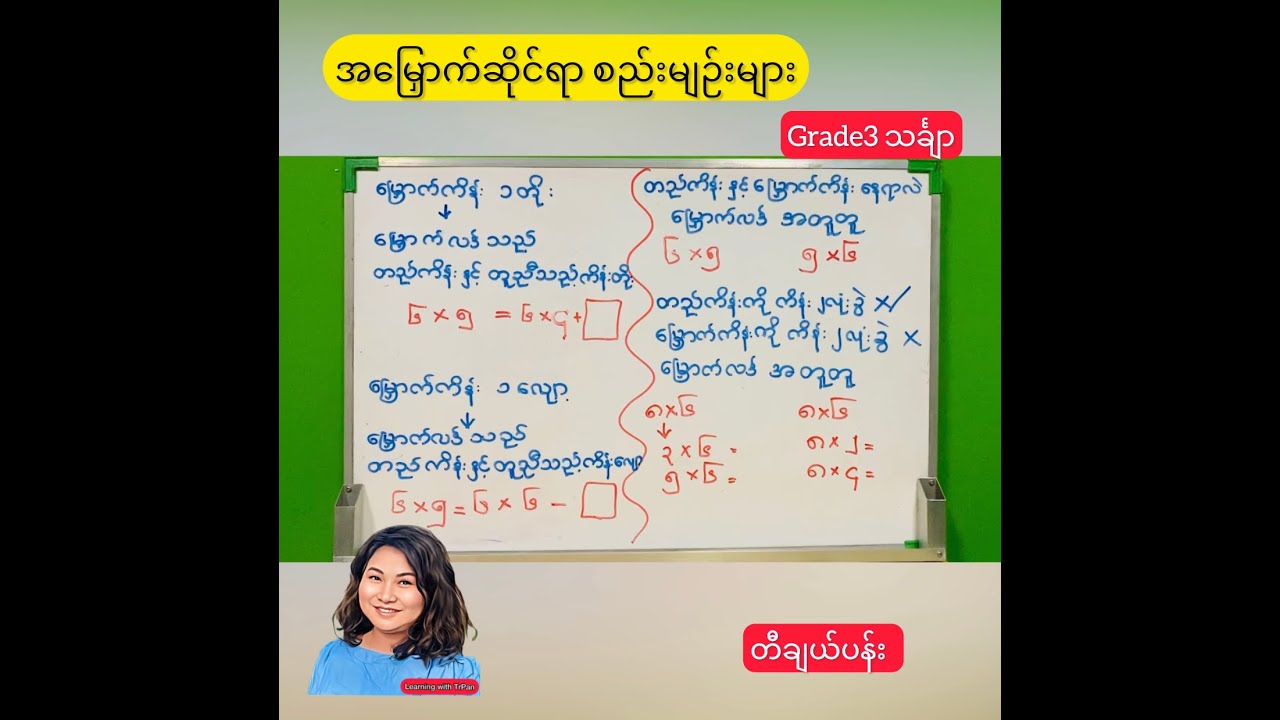 အမြှောက်ဆိုင်ရာ စည်းမျဉ်းများ
Grade3 သင်္ချာ
မြှောက်ကိန်း ၁ တိုး
↓
မြှောက်လဒ် သည်
တည်ကိန်း နှင့် တူညီသည့်ကိန်းတိုး
၆ × ၅ = ၆ × ၄ + □
မြှောက်ကိန်း ၁ လျော့
↓
မြှောက်လဒ် သည်
တည်ကိန်း နှင့် တူညီသည့်ကိန်းလျော့
၆ × ၅ = ၆ × ၆ − □
တည်ကိန်း နှင့် မြှောက်ကိန်း နေရာလဲ
မြှောက်လဒ် အတူတူ
၆ × ၅ ၅ × ၆
တည်ကိန်းကို ကိန်း ၂ လုံး ခွဲ ×
မြှောက်ကိန်းကို ကိန်း ၂ လုံး ခွဲ ×
မြှောက်လဒ် အတူတူ
၈ × ၆ ၈ × ၆
↓
၃ × ၆ = ၈ × ၂ =
၅ × ၆ = ၈ × ၄ =
Learning with TrPan
တီချယ်ပန်း